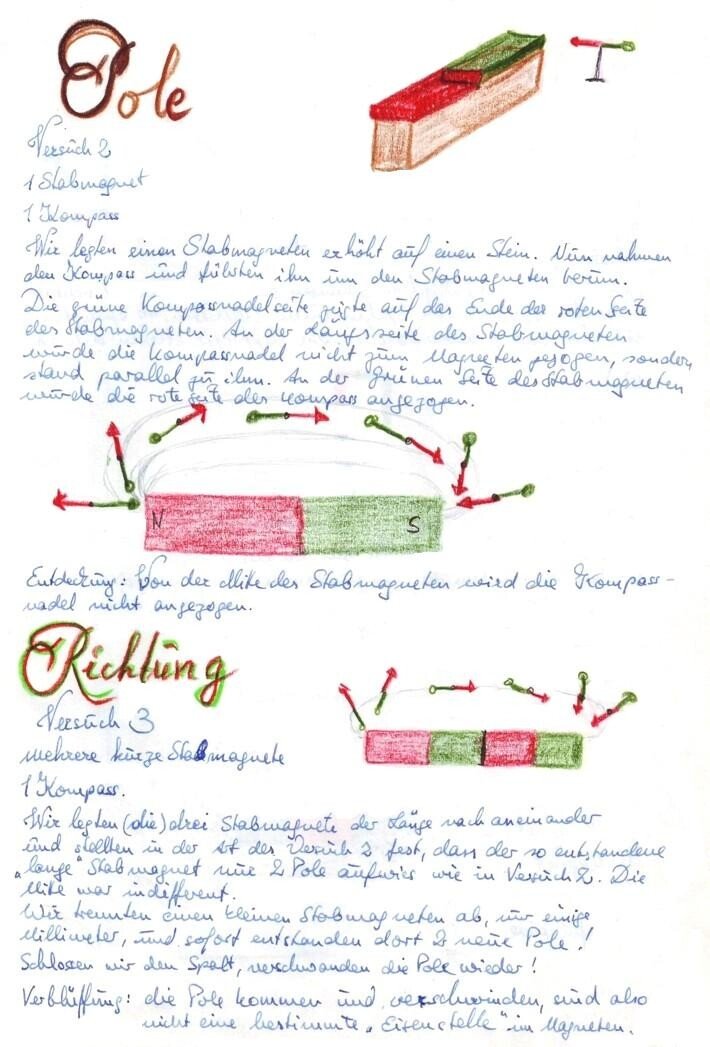 Pole
Versuch 2
1 Stabmagnet
1 Kompass
Wir legten einen Stabmagneten erhöht auf einen Stein. Nun nahmen
den Kompass und führten ihn um den Stabmagneten herum.
Die grüne Kompassnadelseite zeigte auf das Ende der roten Seite
des Stabmagneten. An der Längsseite des Stabmagneten
wurde die Kompassnadel nicht zum Magneten gezogen, sondern
stand parallel zu ihm. An der Grünen Seite des Stabmagneten
wurde die rote Seite der Kompass angezogen.
N S
Entdeckung: Von der Mitte des Stabmagneten wird die Kompass-
nadel nicht angezogen.
Richtung
Versuch 3
mehrere kurze Stabmagnete
1 Kompass.
Wir legten (die) drei Stabmagnete der Länge nach aneinander
und stellten in der Art des Versuch 2 fest, dass der so entstandene
"lange" Stabmagnet nur 2 Pole aufwies wie in Versuch 2. Die
Mitte war indifferent.
Wir trennten einen kleinen Stabmagneten ab, nur einige
Millimeter, und sofort entstanden dort 2 neue Pole!
Schlossen wir den Spalt, verschwanden die Pole wieder!
Verblüffung: die Pole kommen und verschwinden, sind also
nicht eine bestimmte "Eisenstelle" im Magneten.